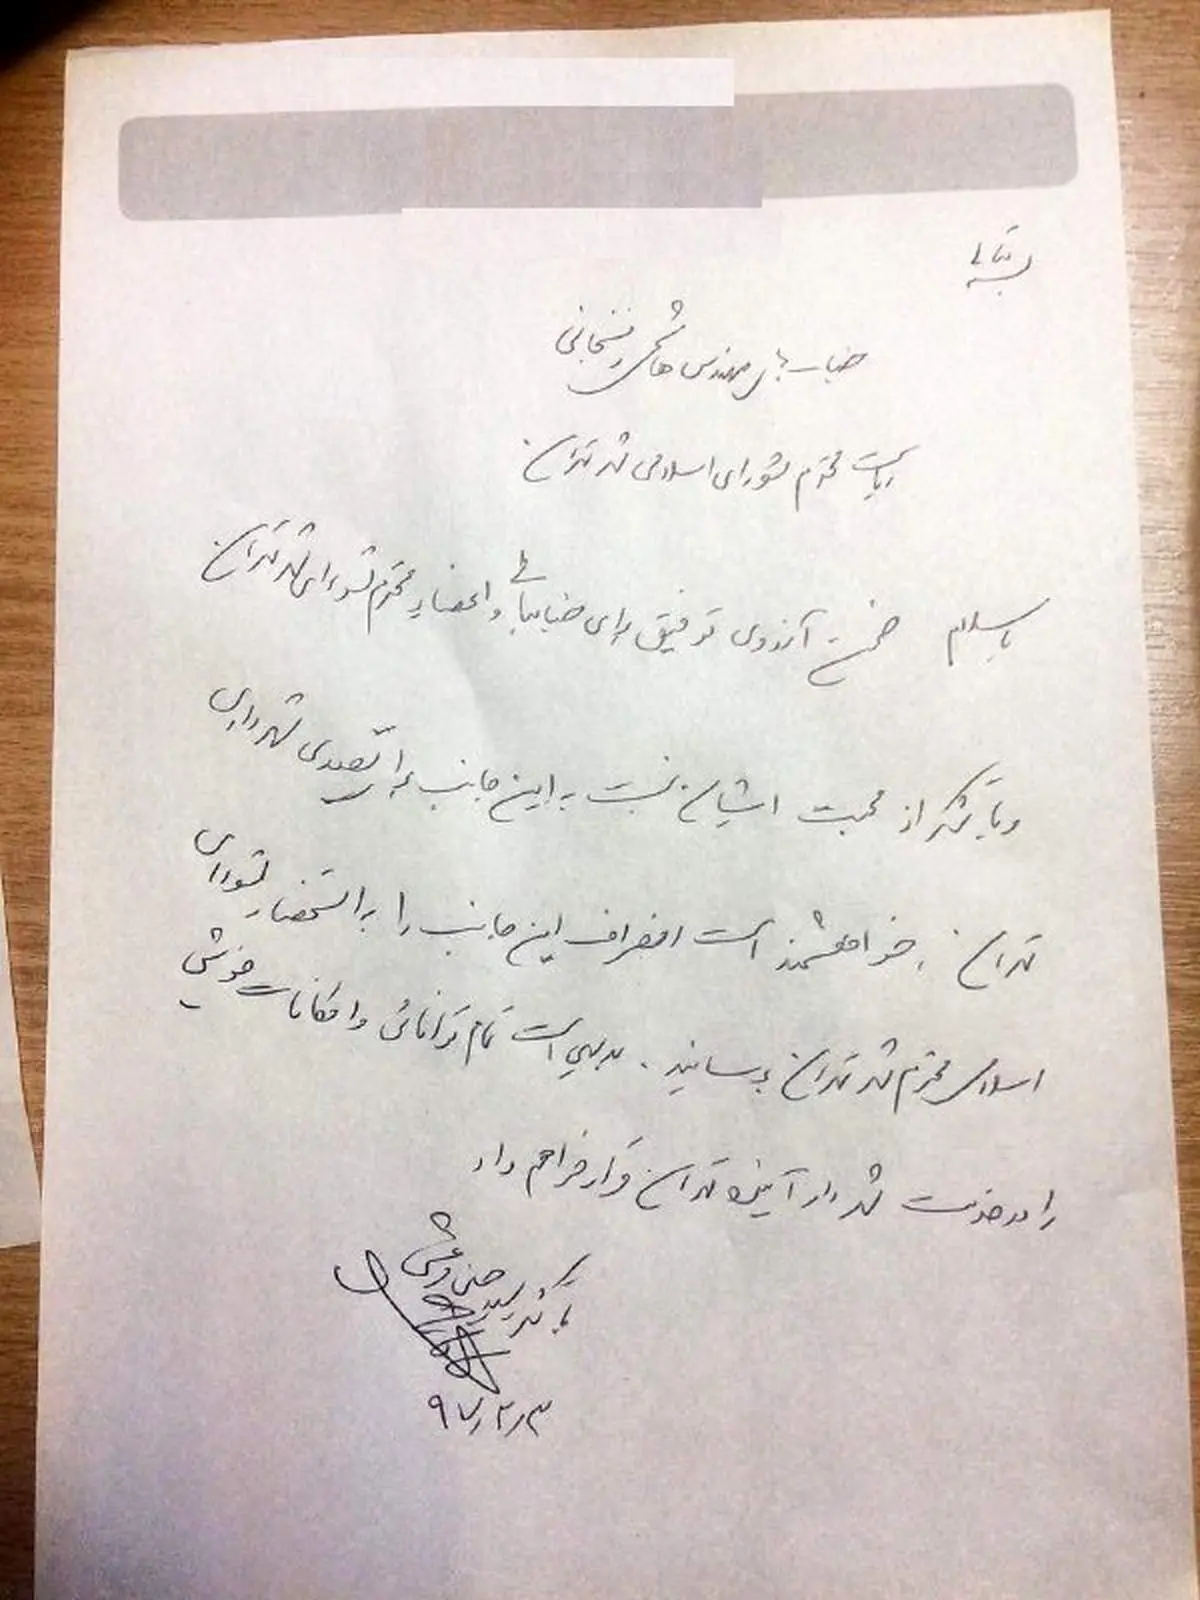 بسمه تعالی
جناب آقای مهندس هاشمی رفسنجانی
ریاست محترم شورای اسلامی شهر تهران
با سلام ضمن آرزوی توفیق برای جنابعالی و اعضای محترم شورای شهر تهران
و با تشکر از محبت ایشان نسبت به این جانب برای تصدی شهرداری
تهران، خواهشمند است انصراف این جانب را به استحضار شورای
اسلامی محترم شهر تهران برسانید. بدیهی است تمام توانائی و امکانات خویش
را در خدمت شهردار آینده تهران قرار خواهم داد
با تشکر سید حسن
۹۷/۲/۳